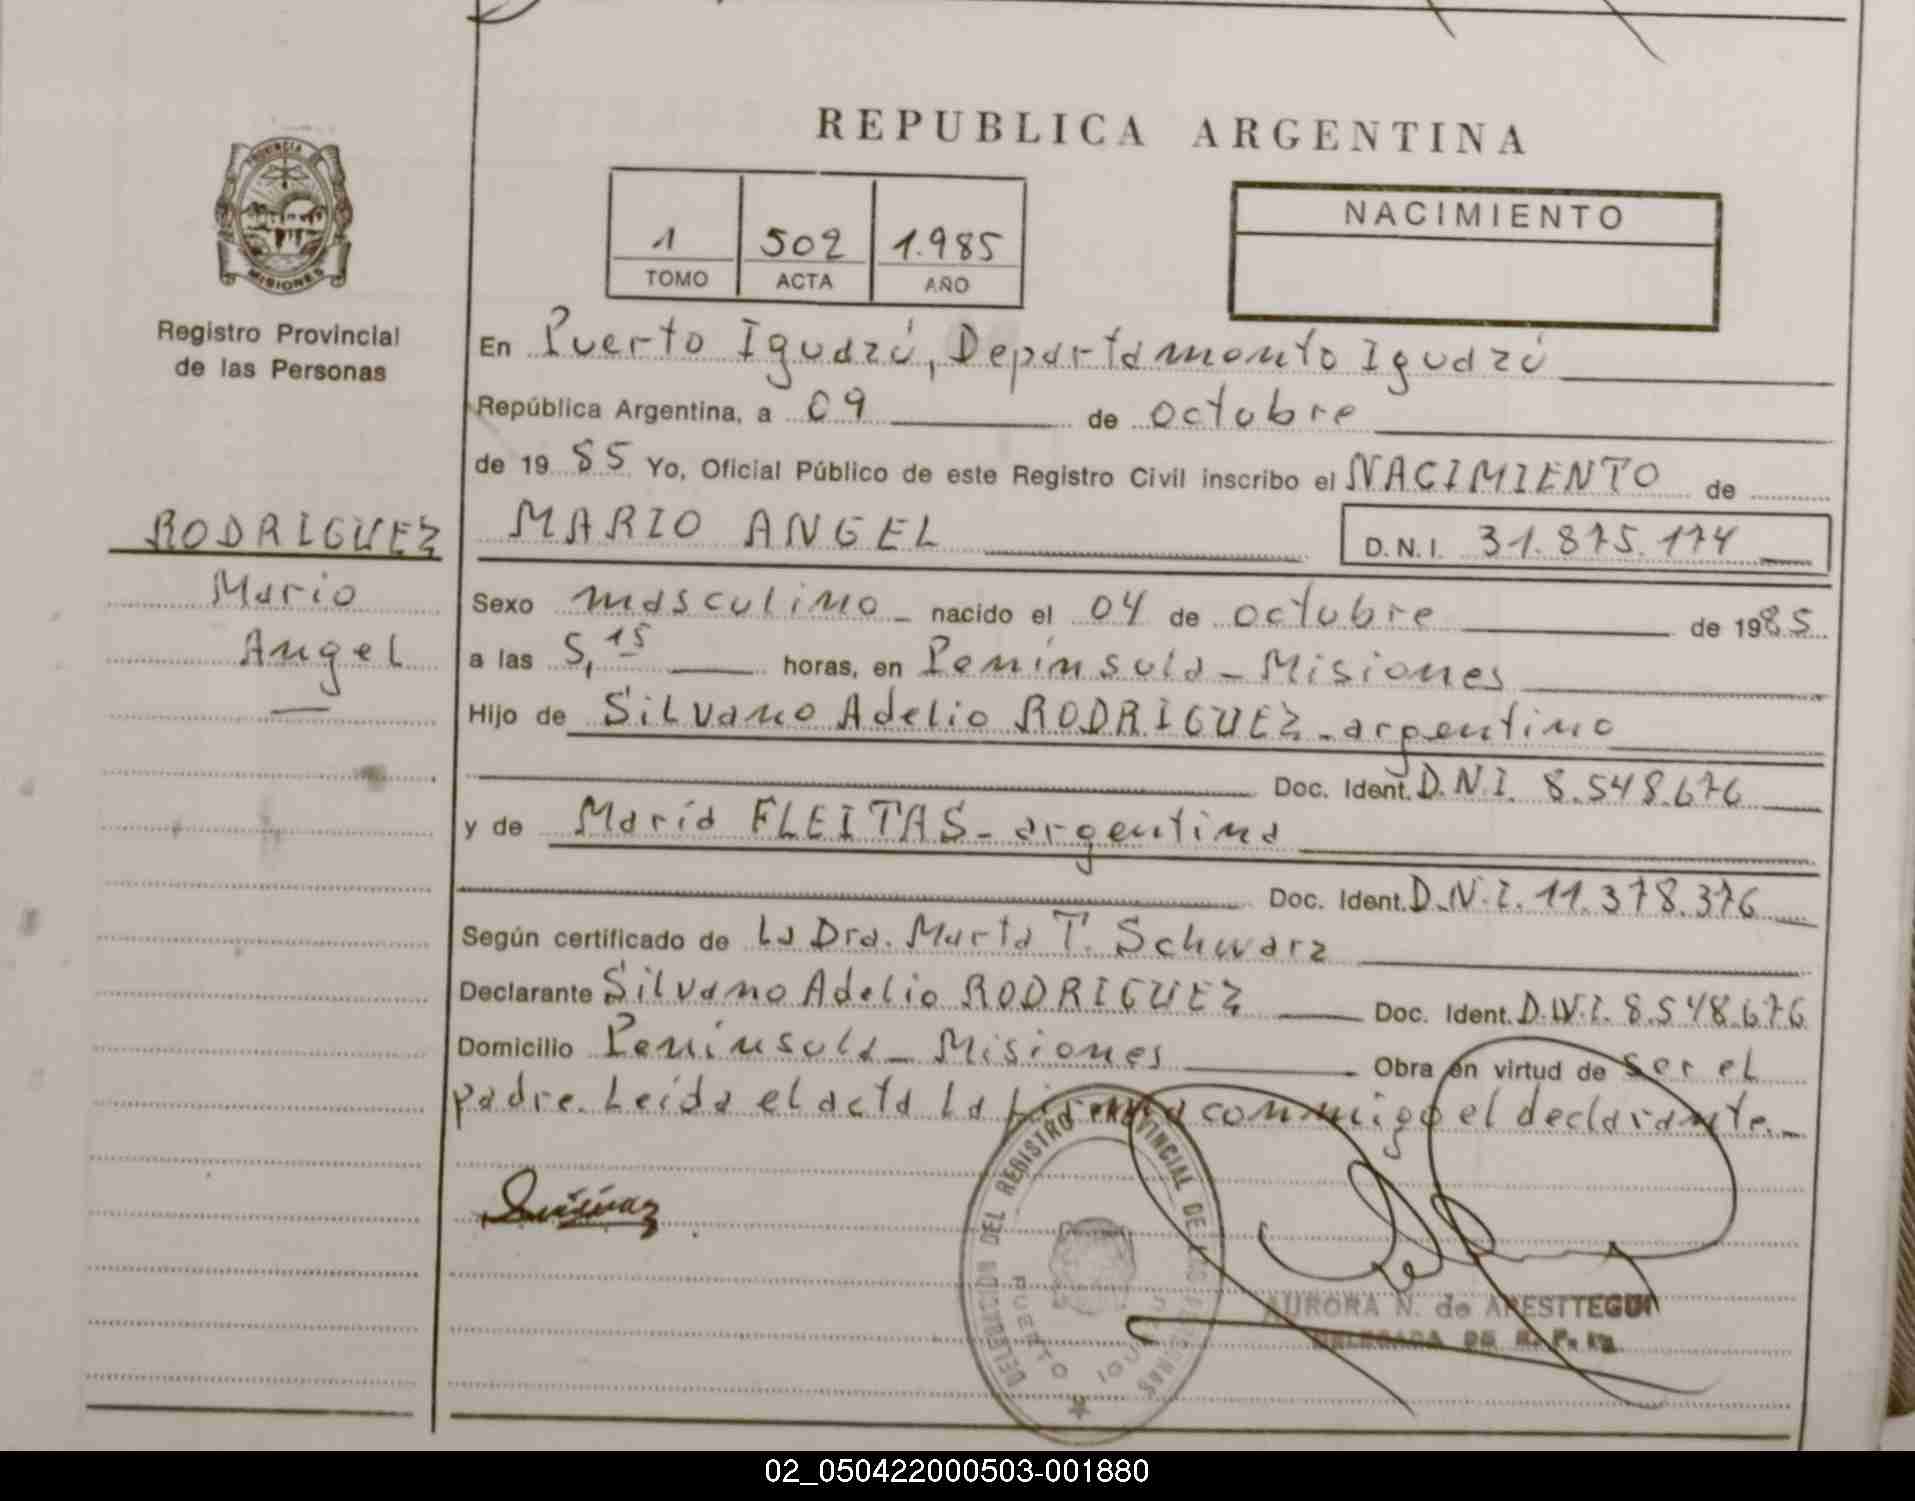 REPUBLICA ARGENTINA
PROVINCIA DE
MISIONES
Registro Provincial
de las Personas
1 502 1.985
TOMO ACTA AÑO
NACIMIENTO
En Puerto Iguazú, Departamento Iguazú
República Argentina, a 09 de octubre
de 19 85 Yo, Oficial Público de este Registro Civil inscribo el NACIMIENTO de
RODRIGUEZ
Mario
Angel
MARIO ANGEL D.N.I. 31.875.174
Sexo masculino - nacido el 04 de octubre de 1985
a las 5,15 horas, en Península - Misiones
Hijo de Silvano Adelio RODRIGUEZ - argentino
Doc. Ident. D.N.I. 8.548.676
y de María FLEITAS - argentina
Doc. Ident. D.N.I. 11.378.376
Según certificado de La Dra. Marta T. Schwarz
Declarante Silvano Adelio RODRIGUEZ Doc. Ident. D.N.I. 8.548.676
Domicilio Península - Misiones Obra en virtud de ser el
padre. Leída el acta la firma conmigo el declarante.-
DELEGACION DEL REGISTRO PROVINCIAL DE LAS PERSONAS
PUERTO IGUAZU
AURORA N. de ARESTTEGUI
DELEGADA DE R. P.
02_050422000503-001880